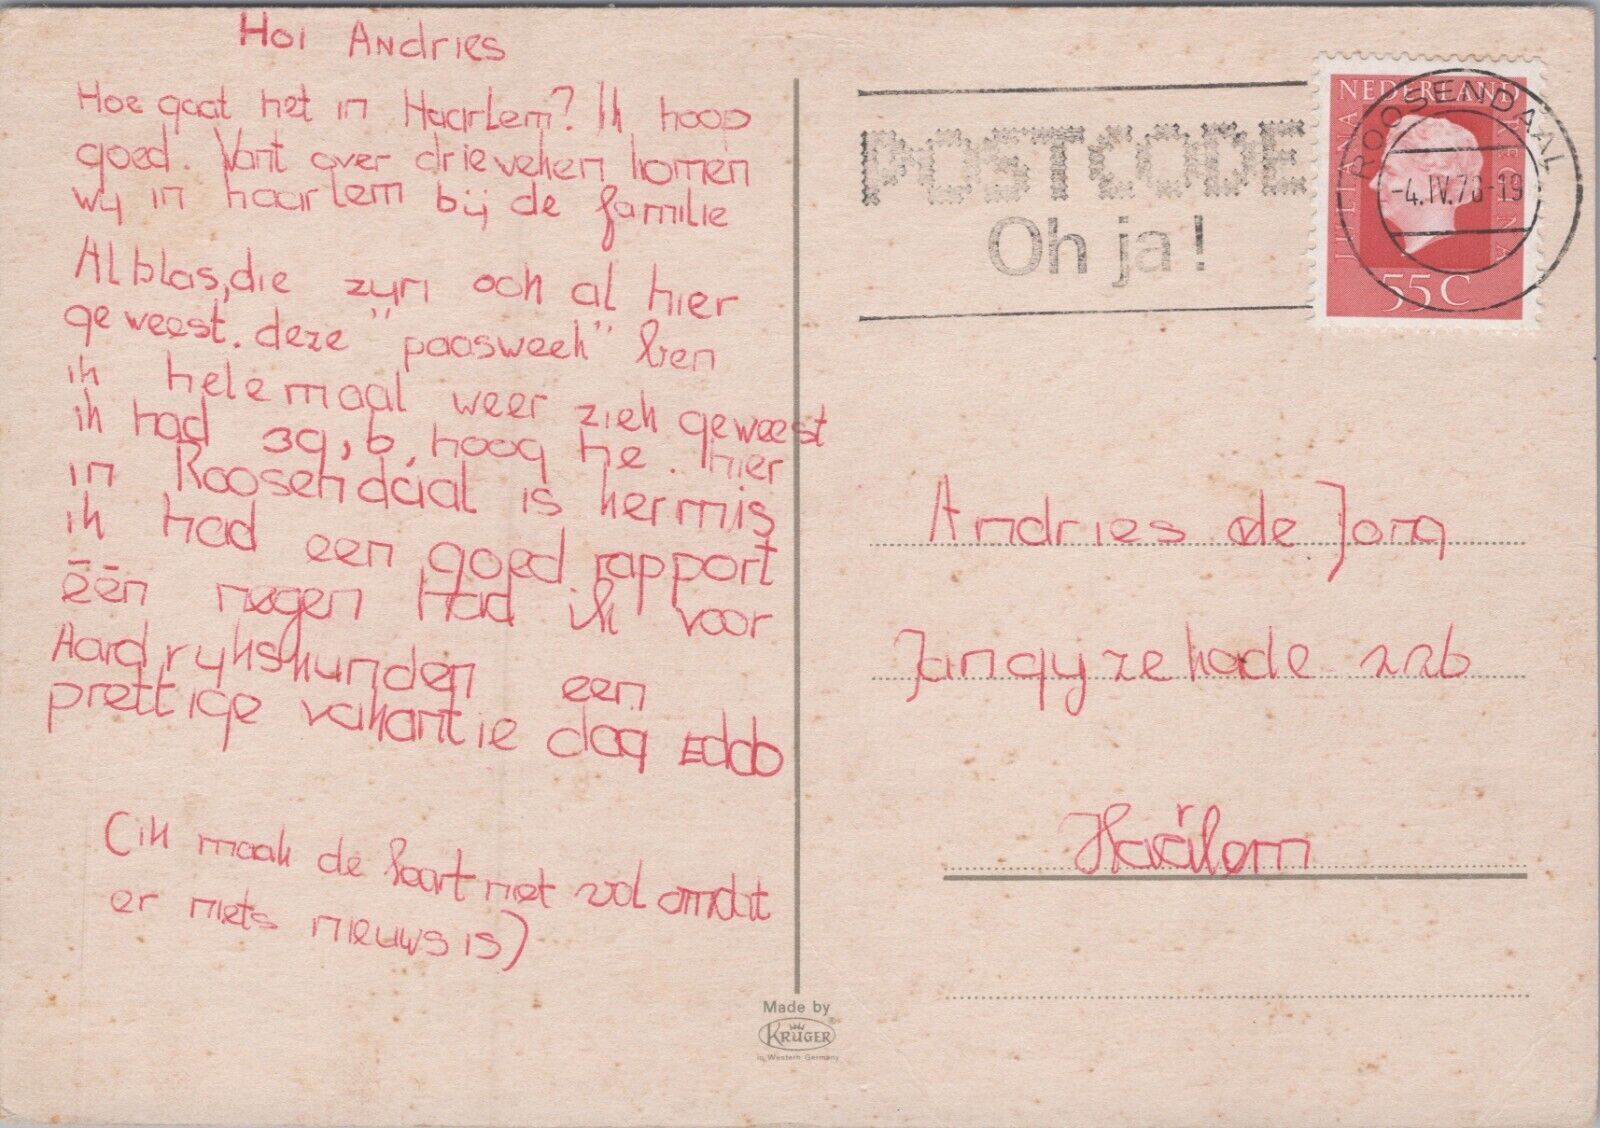 Hoi Andries
Hoe gaat het in Haarlem? Ik hoop
goed. Want over drie veken komen
wij in haarlem bij de familie
Alblas, die zijn ook al hier
geweest. deze "paasweek" ben
ik helemaal weer ziek geweest
ik had 39,6, hoog he. hier
in Roosendaal is kermis
ik had een goed rapport
één negen had ik voor
Aardrijkskunden een
prettige vakantie dag Eddo
(ik maak de kaart niet vol omdat
er niets nieuws is)
Made by
KRÜGER
in Western Germany
POSTCODE
Oh ja!
NEDERLAND
JULIANA REGINA
55 C
ROOSENDAAL
-4.IV.78-19
Andries de Jong
Jangijzekade 226
Haarlem